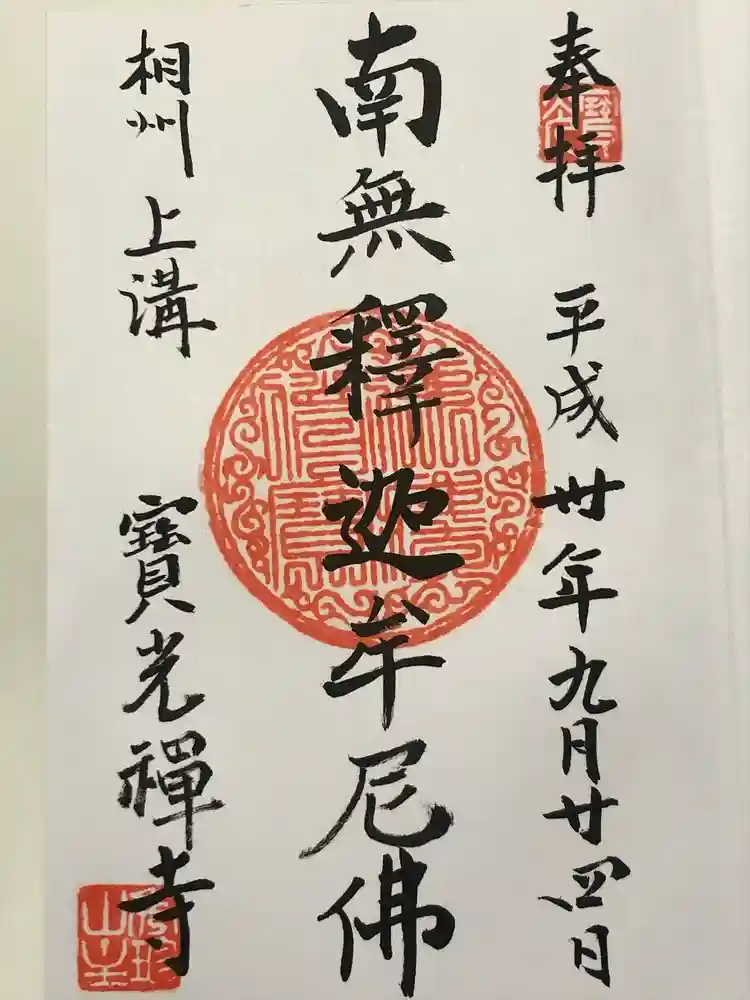 奉拜 平成卅年九月廿四日
南無釋迦牟尼佛
相州上溝 寶光禪寺